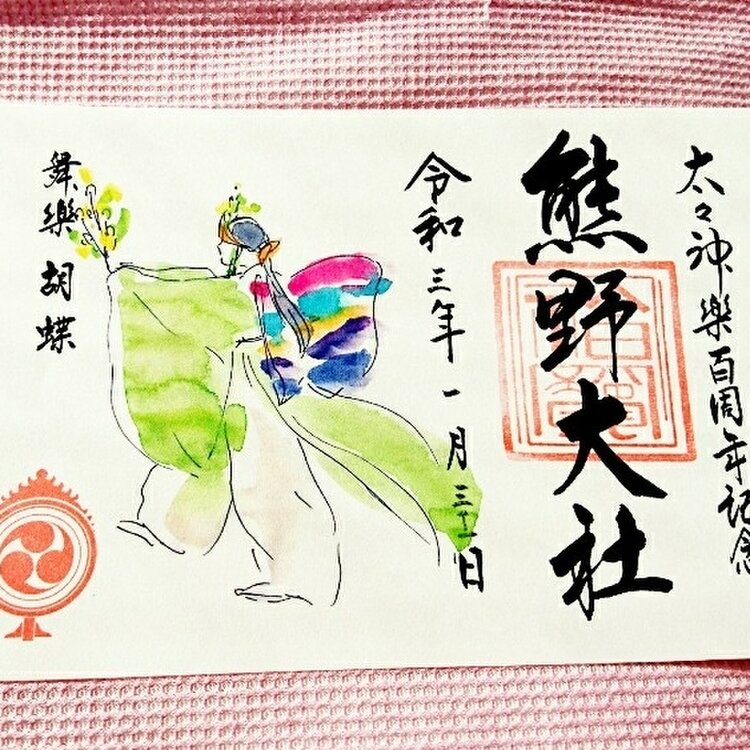 太々神樂百周年記念
熊野大社
令和三年一月三十一日
舞樂 胡蝶